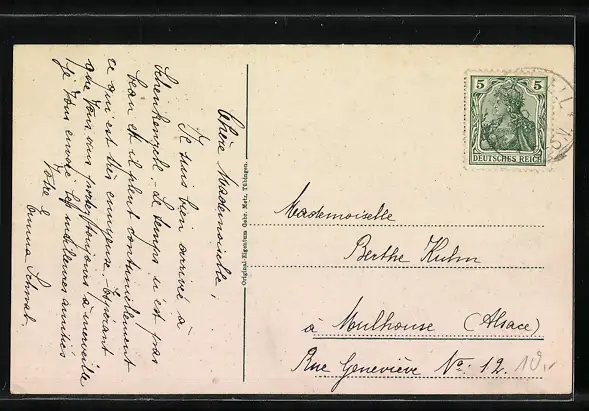 Chère Mademoiselle,
Je suis bien arrivée à
Schenkenzell. Le temps n'est pas
beau et il pleut continuellement
ce qui est très ennuyeux. Espérant
que vous vous portez toujours à merveille
je vous envoie les meilleures amitiés
Votre
Emma
Original-Eigentum Gebr. Metz, Tübingen.
5 5
DEUTSCHES REICH
Mademoiselle
Berthe Kuhn
à Mulhouse (Alsace)
Rue Geneviève No: 12.